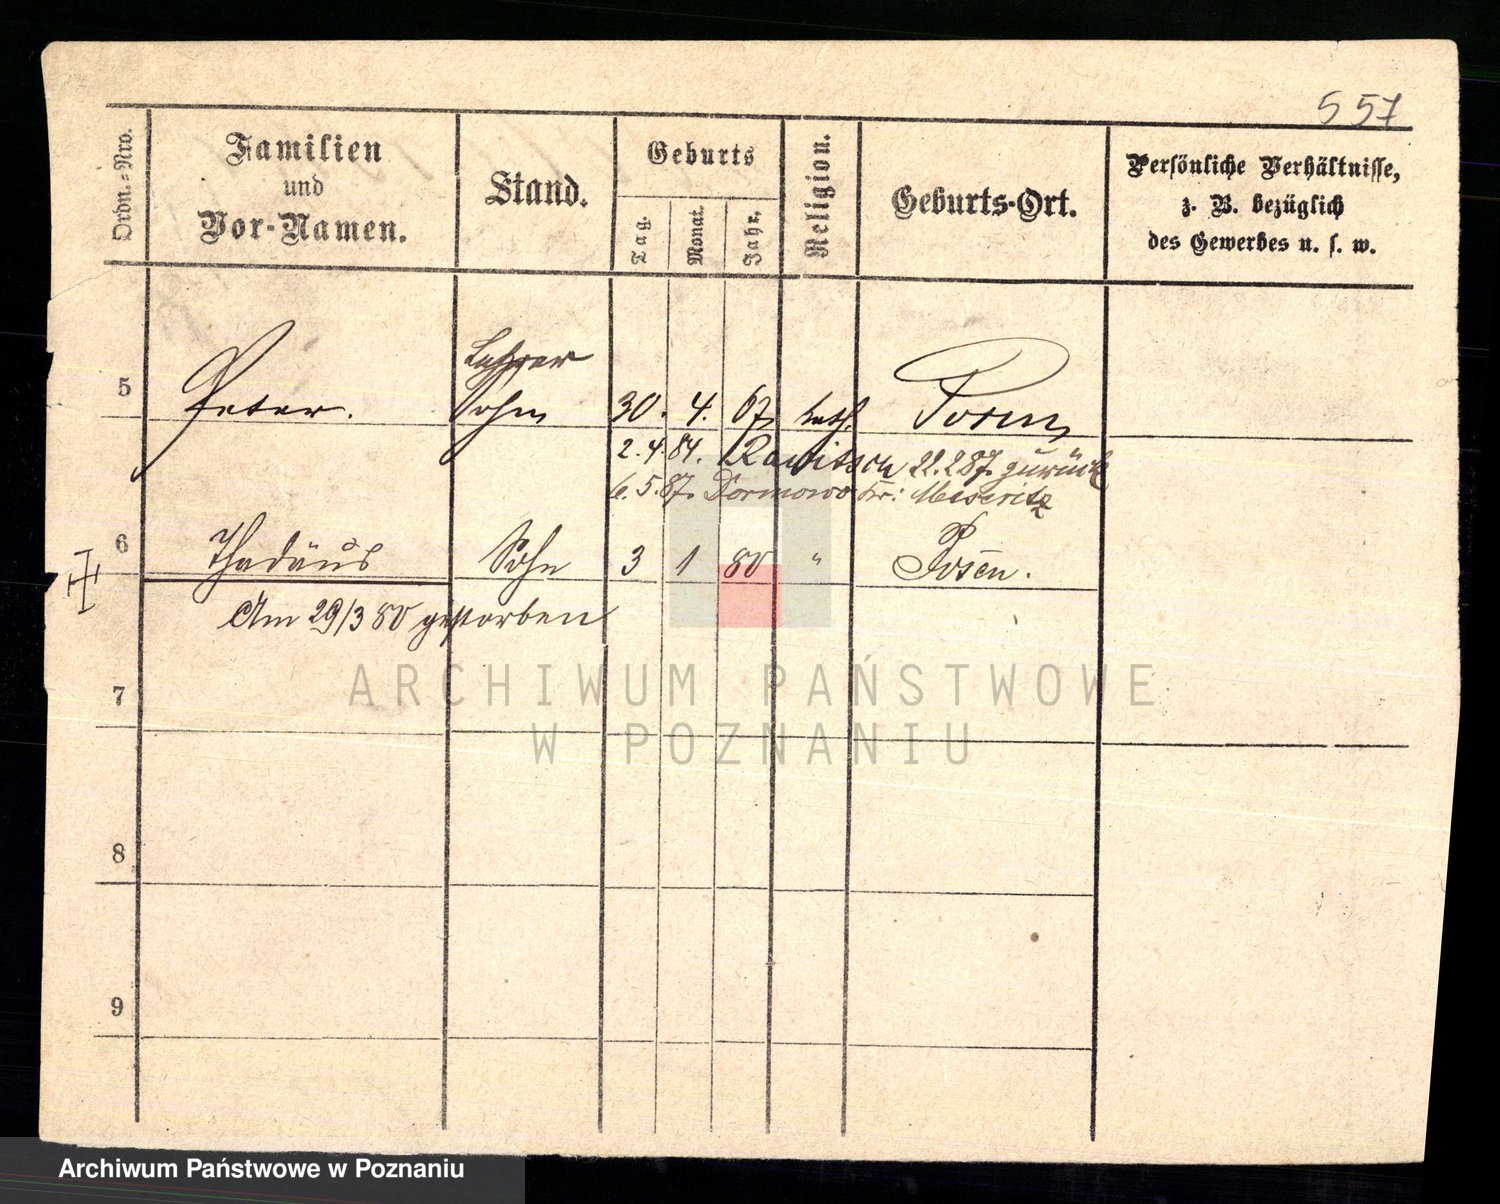 557
Ordn.-Nro.
Familien
und
Vor-Namen.
Stand.
Geburts
Tag.
Monat.
Jahr.
Religion.
Geburts-Ort.
Persönliche Verhältnisse,
z. B. bezüglich
des Gewerbes u. s. w.
Lehrer
5 Peter. Sohn 30. 4. 67. kath. Posen
2.4.84. Rawitsch 22.2.87. zurück
6.5.87. Dormowo Kr: Meseritz
6 Thadäus Sohn 3 1 80 " Posen.
Am 29/3 80 gestorben
7
ARCHIWUM PAŃSTWOWE
W POZNANIU
8
9
Archiwum Państwowe w Poznaniu